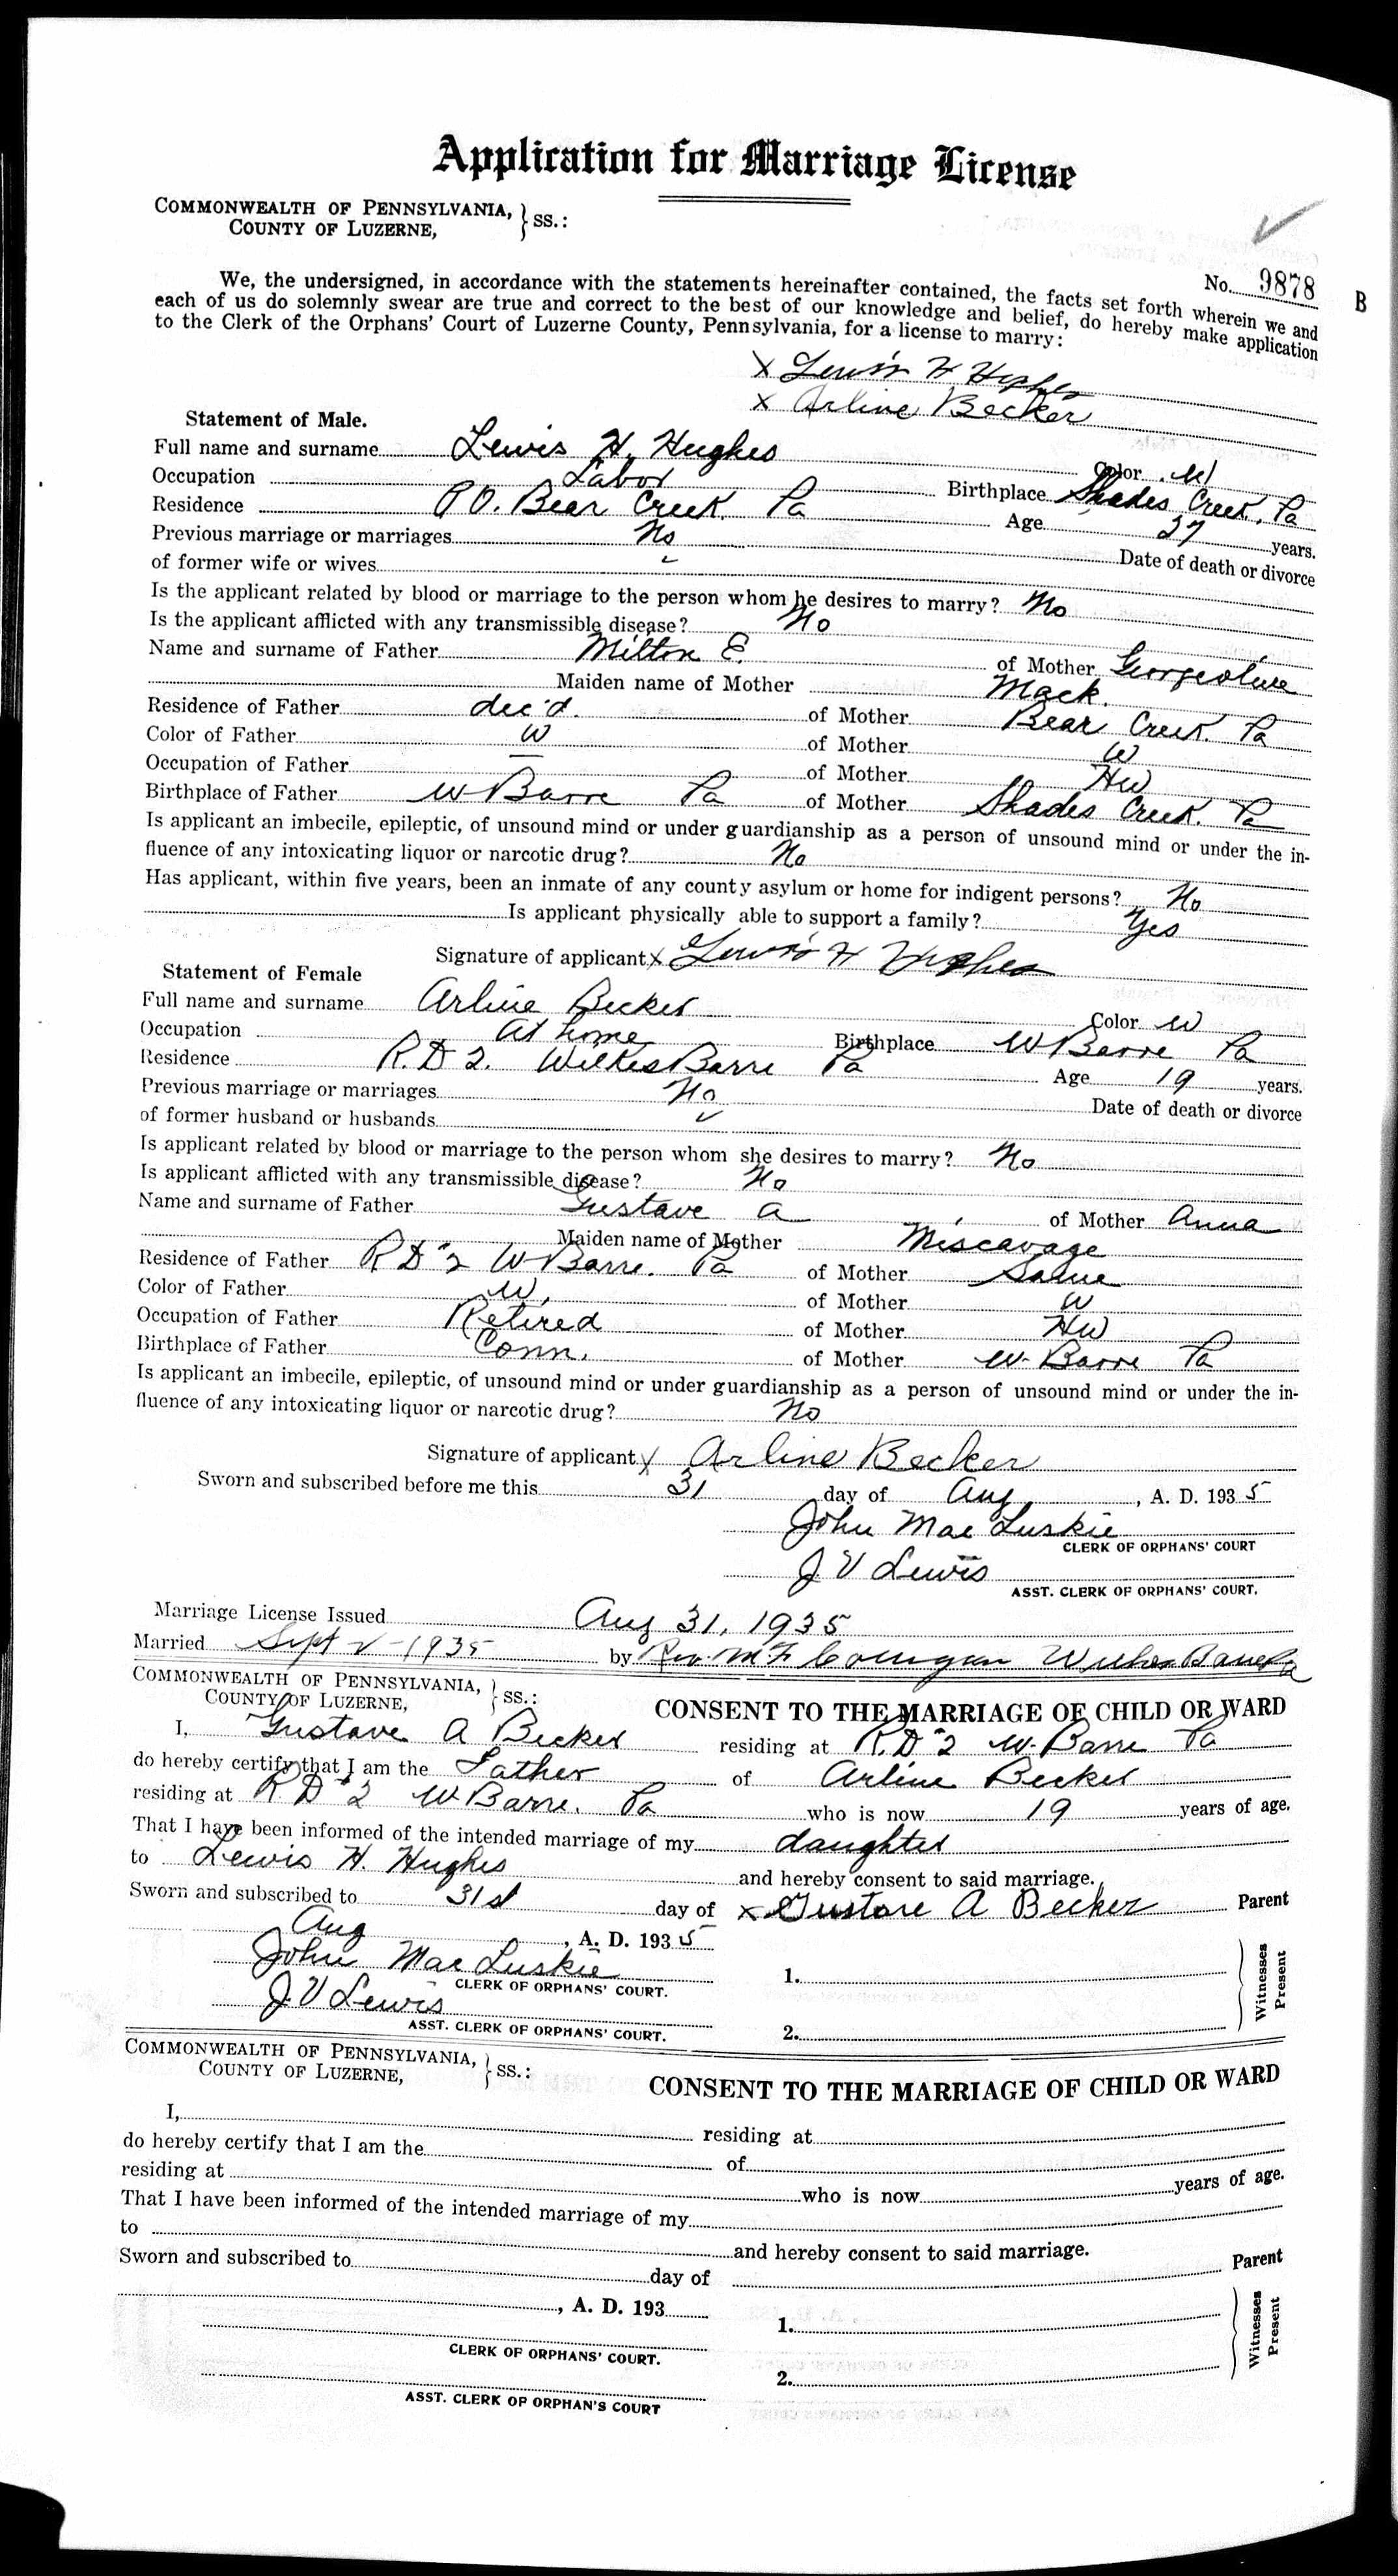 Application for Marriage License
COMMONWEALTH OF PENNSYLVANIA,
COUNTY OF LUZERNE, } SS.:
No. 9878 B
We, the undersigned, in accordance with the statements hereinafter contained, the facts set forth wherein we and
each of us do solemnly swear are true and correct to the best of our knowledge and belief, do hereby make application
to the Clerk of the Orphans' Court of Luzerne County, Pennsylvania, for a license to marry:
X Lewis H Hughes
X Arline Becker
Statement of Male.
Full name and surname Lewis H. Hughes Color W
Occupation Labor Birthplace Shades Creek, Pa
Residence P O. Bear Creek Pa Age 27 years.
Previous marriage or marriages No Date of death or divorce
of former wife or wives
Is the applicant related by blood or marriage to the person whom he desires to marry? No
Is the applicant afflicted with any transmissible disease? No
Name and surname of Father Milton E. of Mother
Maiden name of Mother Mack.
Residence of Father dec'd. of Mother Bear Creek. Pa
Color of Father W of Mother W
Occupation of Father — of Mother HW
Birthplace of Father W Barre Pa of Mother Shades Creek. Pa
Is applicant an imbecile, epileptic, of unsound mind or under guardianship as a person of unsound mind or under the in-
fluence of any intoxicating liquor or narcotic drug? No
Has applicant, within five years, been an inmate of any county asylum or home for indigent persons? No
Is applicant physically able to support a family? Yes
Signature of applicant X Lewis H Hughes
Statement of Female
Full name and surname Arline Becker Color W
Occupation At home Birthplace W Barre Pa
Residence R.D 2. Wilkes Barre Pa Age 19 years.
Previous marriage or marriages No Date of death or divorce
of former husband or husbands
Is applicant related by blood or marriage to the person whom she desires to marry? No
Is applicant afflicted with any transmissible disease? No
Name and surname of Father Gustave A of Mother Anna
Maiden name of Mother Miscavage
Residence of Father R D "2 W Barre. Pa of Mother Same
Color of Father W. of Mother W
Occupation of Father Retired of Mother HW
Birthplace of Father Conn. of Mother W. Barre Pa
Is applicant an imbecile, epileptic, of unsound mind or under guardianship as a person of unsound mind or under the in-
fluence of any intoxicating liquor or narcotic drug? No
Signature of applicant X Arline Becker
Sworn and subscribed before me this 31 day of Aug, A. D. 1935
John Mac Luskie
CLERK OF ORPHANS' COURT
J V Lewis
ASST. CLERK OF ORPHANS' COURT.
Marriage License Issued Aug 31, 1935
Married Sept 2-1935 by Rev. M F Wilkes Barre Pa
COMMONWEALTH OF PENNSYLVANIA,
COUNTY OF LUZERNE, } SS.:
CONSENT TO THE MARRIAGE OF CHILD OR WARD
I, Gustave A Becker residing at R.D "2 W. Barre Pa
do hereby certify that I am the Father of Arline Becker
residing at R D "2 W Barre. Pa who is now 19 years of age.
That I have been informed of the intended marriage of my daughter
to Lewis H. Hughes and hereby consent to said marriage.
Sworn and subscribed to 31st day of X Gustave A Becker Parent
Aug, A. D. 1935
John Mac Luskie 1.
CLERK OF ORPHANS' COURT.
J V Lewis
ASST. CLERK OF ORPHANS' COURT. 2.
Witnesses Present
COMMONWEALTH OF PENNSYLVANIA,
COUNTY OF LUZERNE, } SS.:
CONSENT TO THE MARRIAGE OF CHILD OR WARD
I, residing at
do hereby certify that I am the of
residing at who is now years of age.
That I have been informed of the intended marriage of my
to and hereby consent to said marriage.
Sworn and subscribed to day of Parent
, A. D. 193
1.
CLERK OF ORPHANS' COURT.
2.
ASST. CLERK OF ORPHAN'S COURT
Witnesses Present